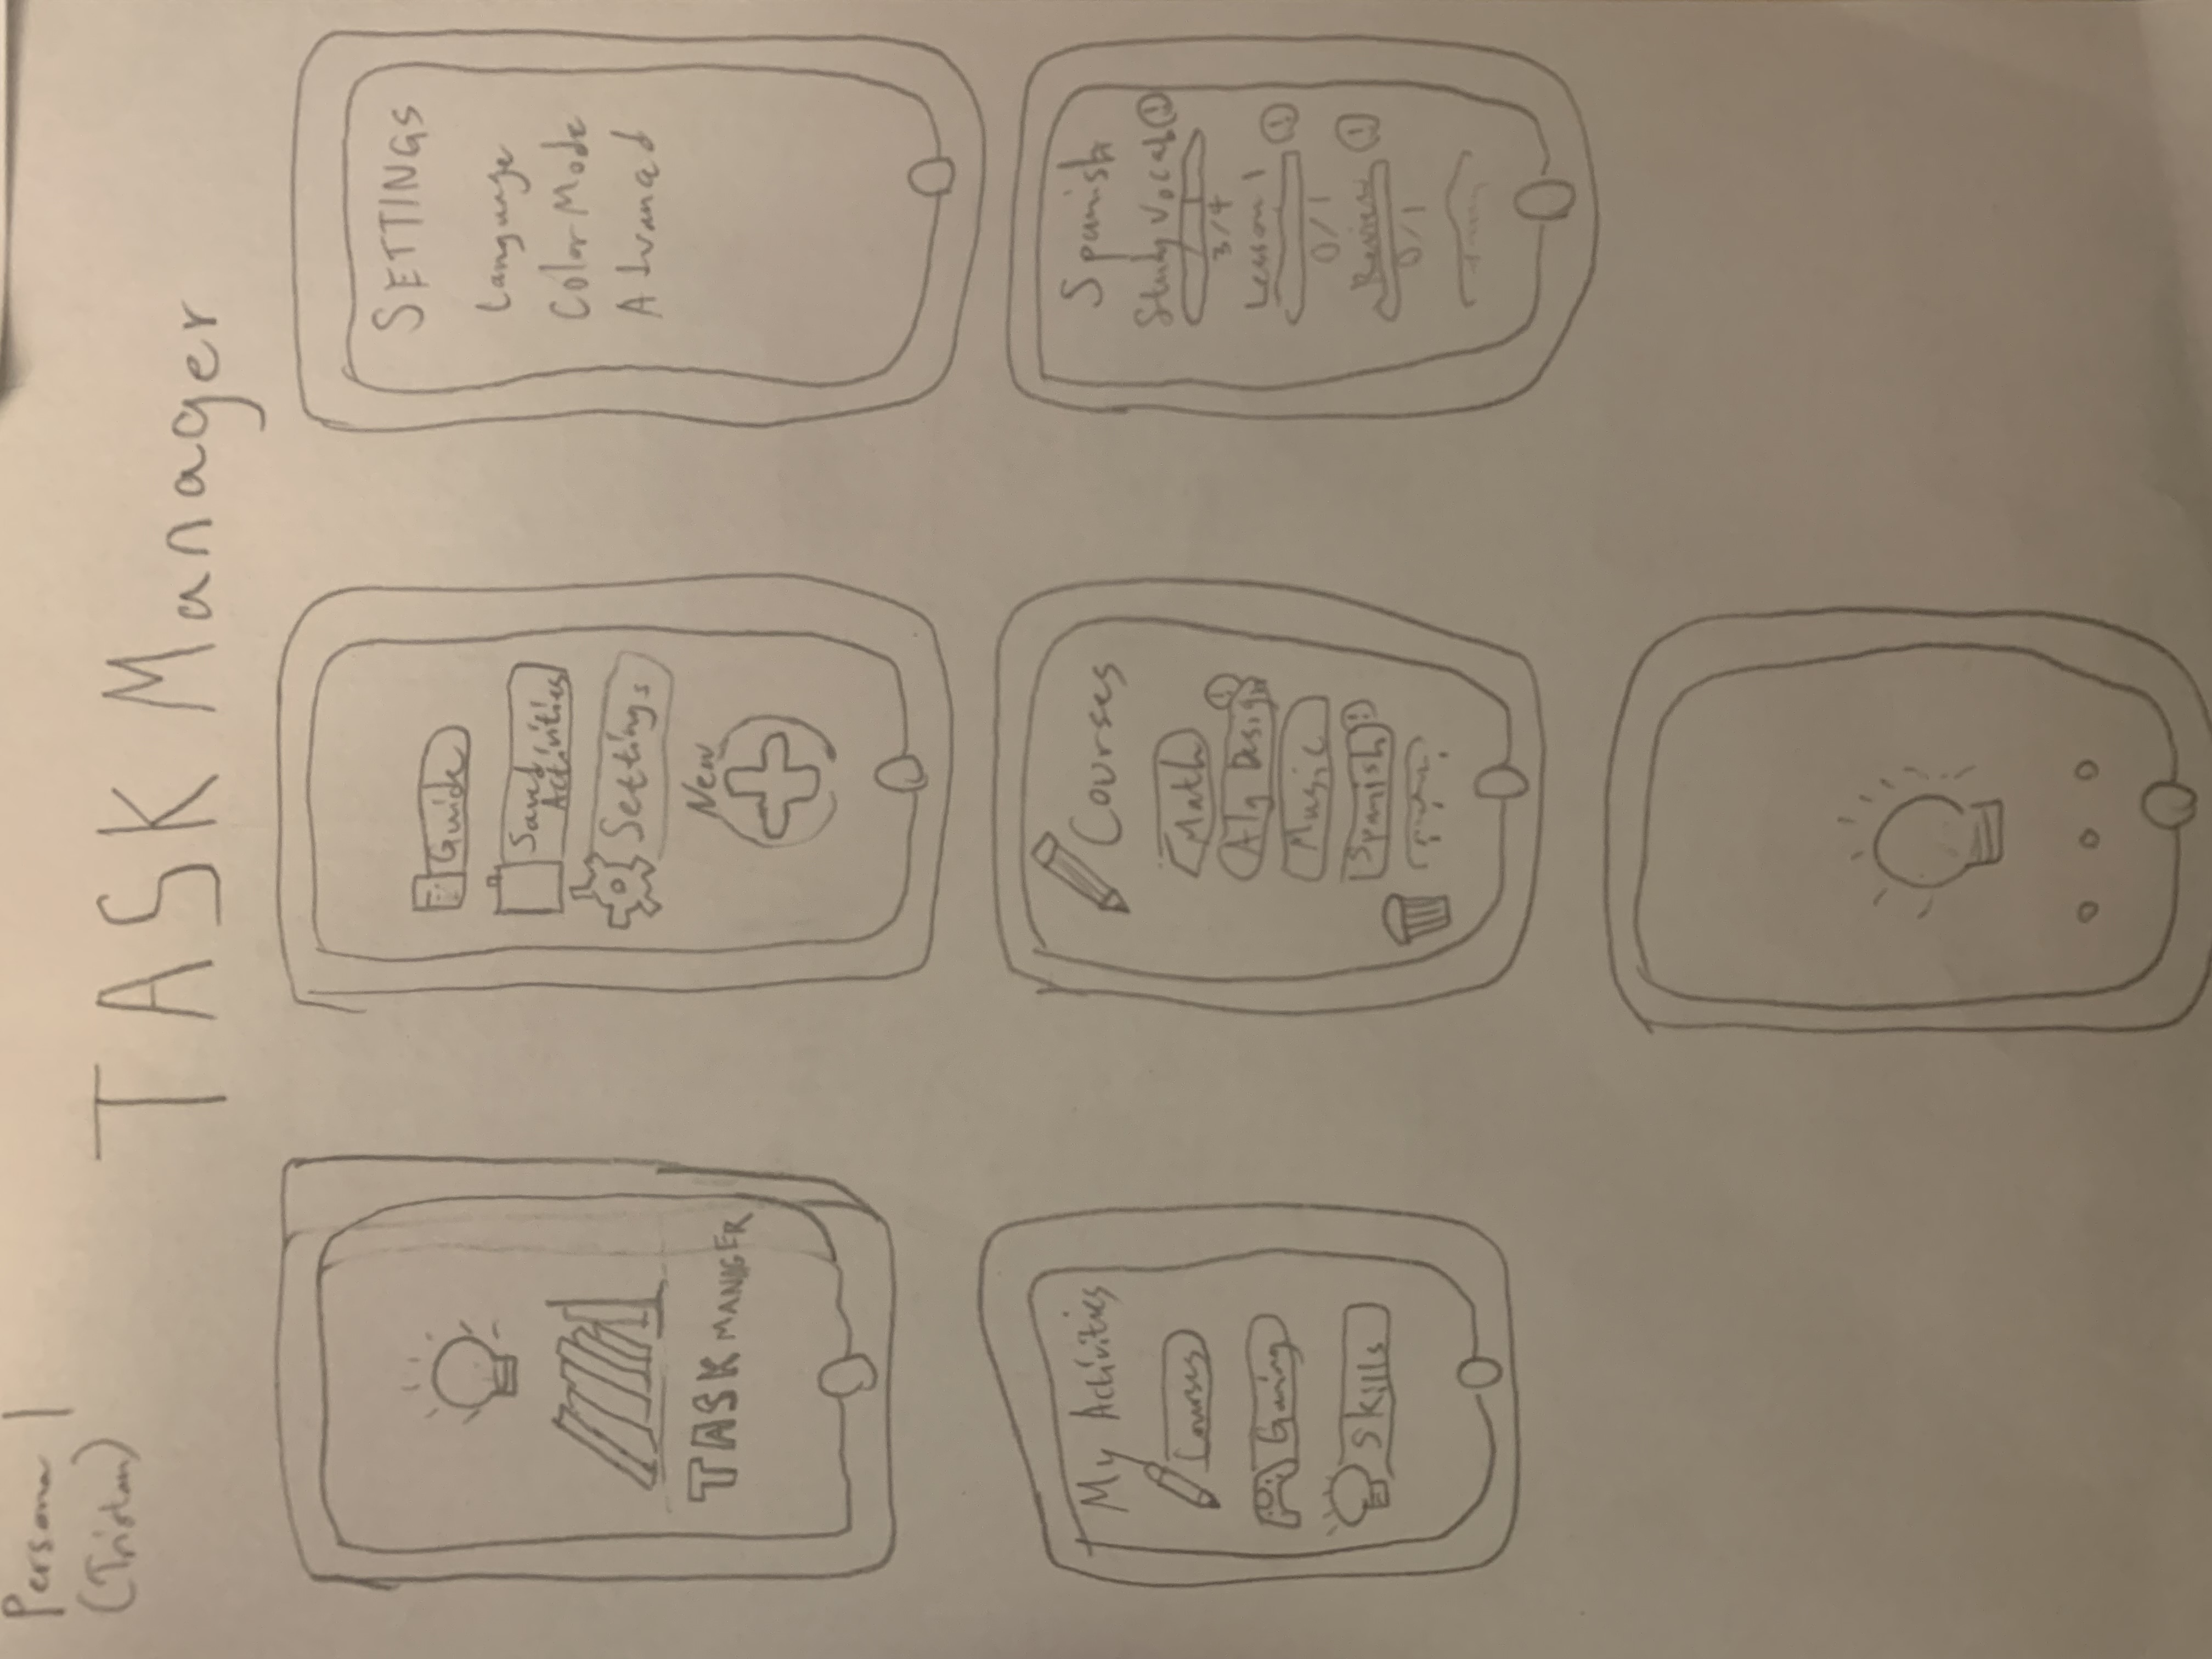 Persona 1
(Tristan)
TASK Manager
TASK MANAGER
Guide
Saved
Activities
Settings
New
SETTINGS
Language
Color Mode
Advanced
My Activities
Courses
Gaming
Skills
Courses
Math
!
Alg Design
Music
Spanish !
Spanish
Study Vocab !
3/4
Lesson 1
!
0/1
Review !
0/1